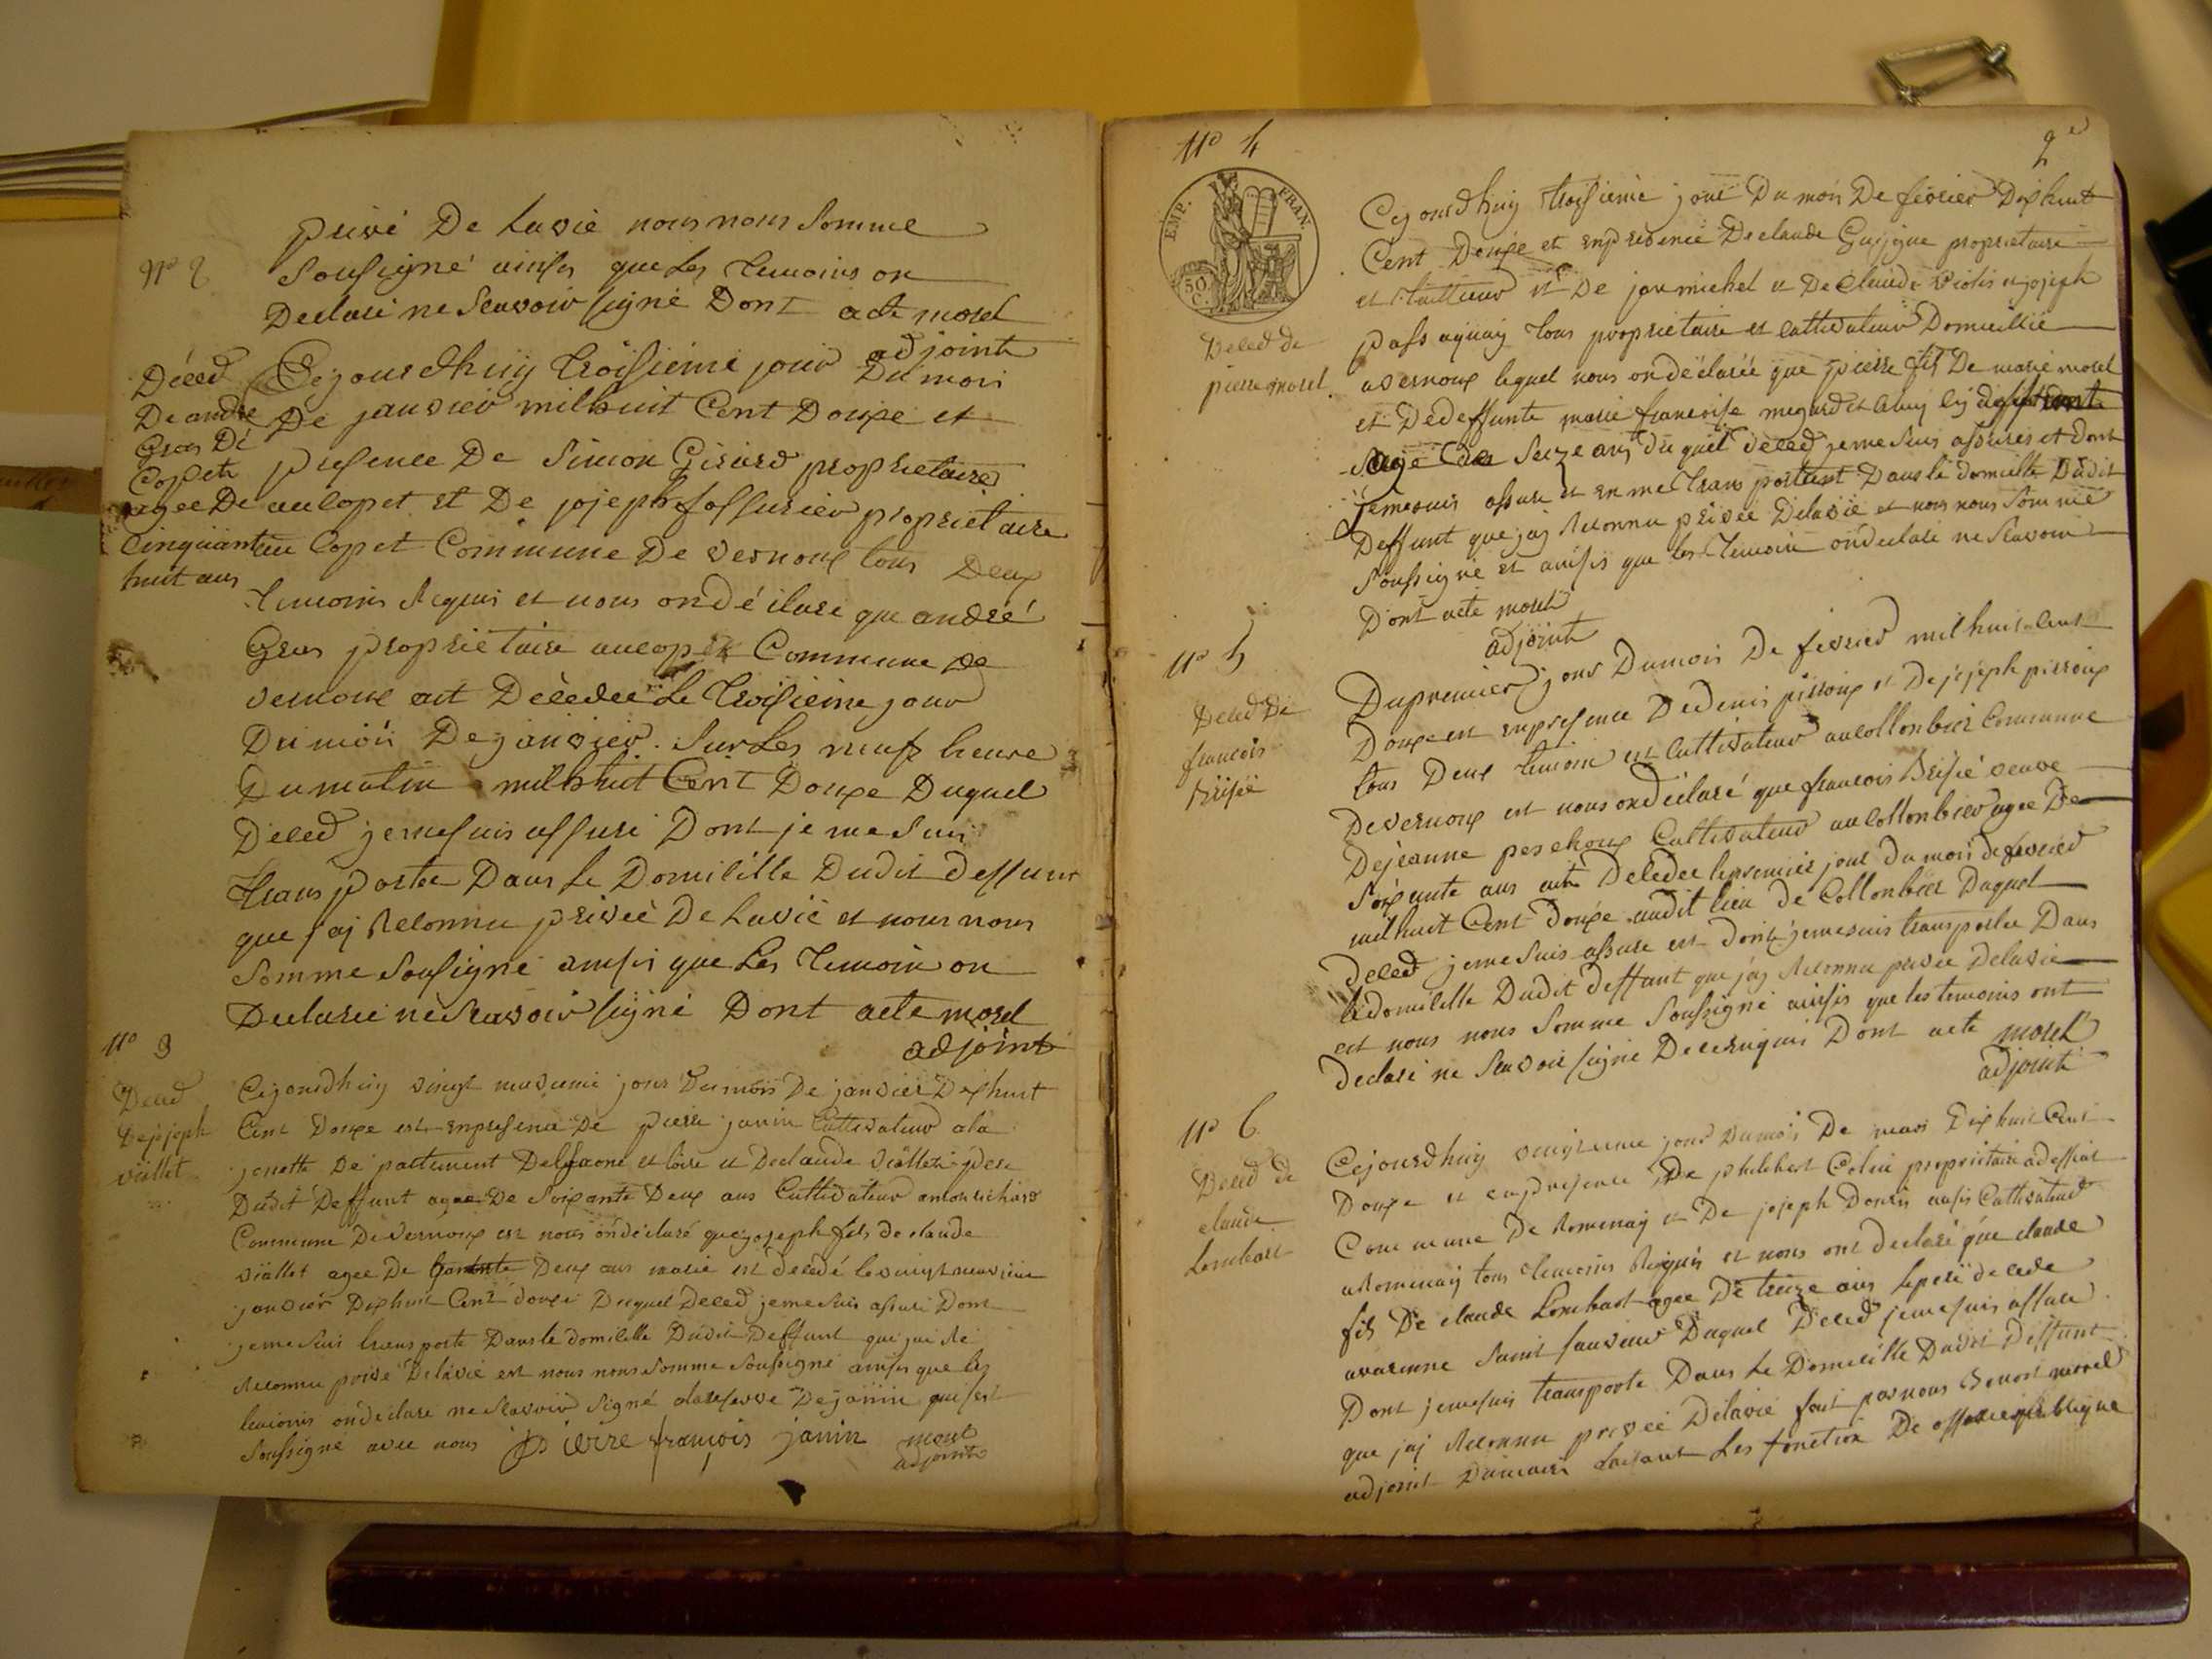 privé De Lavie nous nous Somme
N° 2
Soussigné ainsis que Les temoins on
Declaré ne Scavoir signé Dont acte morel
adjoint
Déced
De andré
Gras De
Copet
agee De
Cinquante
huit ans
Cejourdhuy troisieme jour Du mois
De janvier milhuit Cent Douze et
presence De Simon Girard proprietaire
au Copet et De joseph fossurier proprietaire
au Copet Commune De vernoux tous Deux
temoins Requis et nous on déclare que andréé
Gras proprietaire au Copet Commune De
vernoux ait Décedee Le troisieme jour
Du mois De janvier Sur Les neufs heure
Du matin milhuit Cent Douze Duquel
Déced je me suis assuré Dont je me suis
trans portee Dans Le Domicille Dudit deffunt
que jaj Reconnu privée De Lavie et nous nous
Somme Soussigné ainsis que Les temoin on
Declaree ne Scavoir signé Dont acte morel
adjoint
N° 3
Deced
De joseph
viallet
Cejourdhuy vingt neuvieme jour Du mois De janvier Dixhuit
Cent Douze est en presence De pierre janin Cultivateur ala
jenette De partement De Saone et loire et De claude viallet pere
Dudit Deffunt agee De Soixante Deux ans Cultivateur
Commune De vernoux est nous on declaré que joseph fils de claude
viallet agee De Deux ans marié est decedé le vingt neuvieme
janvier Dixhuit Cent douze Duquel Deced je me suis assuré Dont
je me suis trans porte Dans le domicille Dudit Deffunt que jai Re
Reconnu privé De lavie est nous nous somme Soussigné ainsis que les
temoins on declaré ne Scavoir signé alareserve De janin qui sest
Soussigné avec nous pierre françois janin morel
adjoint
N° 4
2e
EMP. FRAN.
50 C.
Deced de
pierre morel
Cejourdhuy troisieme jour Du mois De fevrier Dixhuit
Cent Douze et en presence De claude Guigue proprietaire
et De jan michel et De Claude violis et joseph
tous proprietaire et Cultivateur Domicillié
a vernoux lequel nous on déclaréé que pierre fils De marie morel
et De deffunte marie francoise megard
age de Seize ans du quel deced je me suis assurés et dont
je me suis assuré et en me trans portant Dans le domicille Dudit
Deffunt que jay Reconnu privée De lavie et nous nous Somme
Soussigné et ainsis que les temoin on declaré ne Scavoir
Dont acte morel
adjoint
N° 5
Deced De
francois
Brisié
Du premier jour Du mois De fevrier mil huit Cent
Douze est en presence De denis pirroux et De joseph pirroux
tous Deux temoin est Cultivateur au Collonbier Commune
De vernoux est nous on déclaré que francois Brisié veuve
De jeanne Cultivateur au Collonbier agee De
Soixante ans Decedee le premier jour du mois de fevrier
mil huit Cent douze audit lieu de Collonbier Duquel
Deced je me suis assure est dont je me suis transportee Dans
le domicille Dudit deffunt que jay Reconnu privee De lavie
est nous nous Somme Soussigné ainsis que les temoins ont
declaré ne Scavoir signe De ce Requis Dont acte morel
adjoint
N° 6
Deced De
claude
Lombart
Cejourdhuy vingt une jour Du mois De mars Dixhuit Cent
Douze et en presence De philibert Colin proprietaire
Commune De Romenay et De joseph Donin ausis Cultivateur
a Romenay tous temoins Requis et nous ont declaré que claude
fils De claude Lombart agee De treize ans decede
avarenne Saint sauveur Duquel Deced je me suis assure
Dont je me suis transporte Dans Le Domicille Dudit Deffunt
que jaj Reconnu privée De lavie fait par nous Benoit morel
adjoint Dumaire faisant Les fonction De officié publique